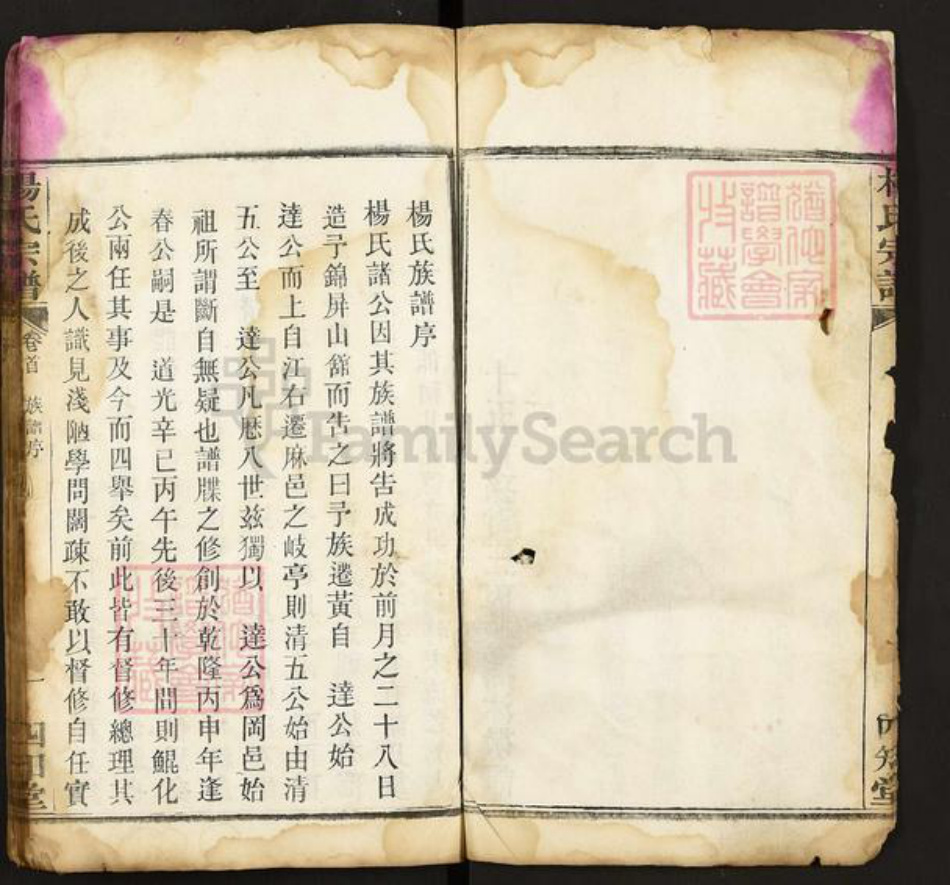 楊氏族譜序
楊氏諸公因其族譜將告成功於前月之二十八日
造予錦屏山舘而告之曰予族遷黃自　達公始
達公而上自江右遷麻邑之岐亭則清五公始由清
五公至　達公凡歷八世茲獨以　達公爲岡邑始
祖所謂斷自無疑也譜牒之修創於乾隆丙申年逢
春公嗣是　道光辛巳丙午先後三十年間則鯤化
公兩任其事及今而四舉矣前此皆有督修總理其
成後之人識見淺陋學問闊疎不敢以督修自任實
楊氏宗譜
卷首　族譜序
一
四知堂
楊氏宗譜
四知堂
猶他家
譜學會
收藏
猶他家
譜學會
收藏
FamilySearch